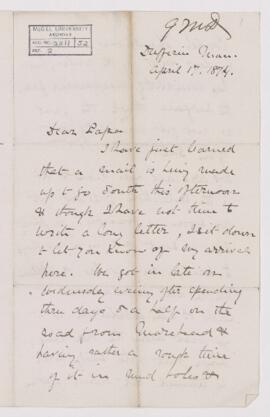 GMD
McGILL UNIVERSITY
ARCHIVES
ACC. NO. 2211 / 52
REF. 2
Dufferin Man.
April 17. 1874.
Dear Papa
I have just learned
that a mail is being made
up to go South this afternoon
& though I have not time to
write a long letter, I sit down
to let you know of my arrival
here. We got in late on
Wednesday evening after spending
three days & a half on the
road from Moorehead &
having rather a rough time
of it in mud holes &